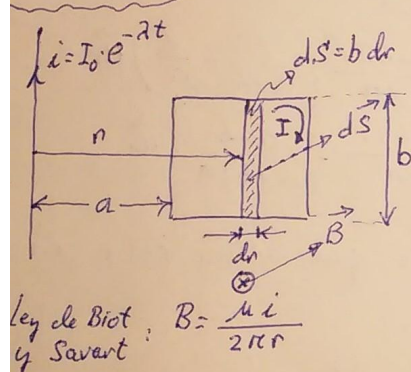 i = I₀·e^-λt
dS = b dr
r
I
dS⃗
b
a
dr
B⃗
Ley de Biot
y Savart : B = μ i / 2πr